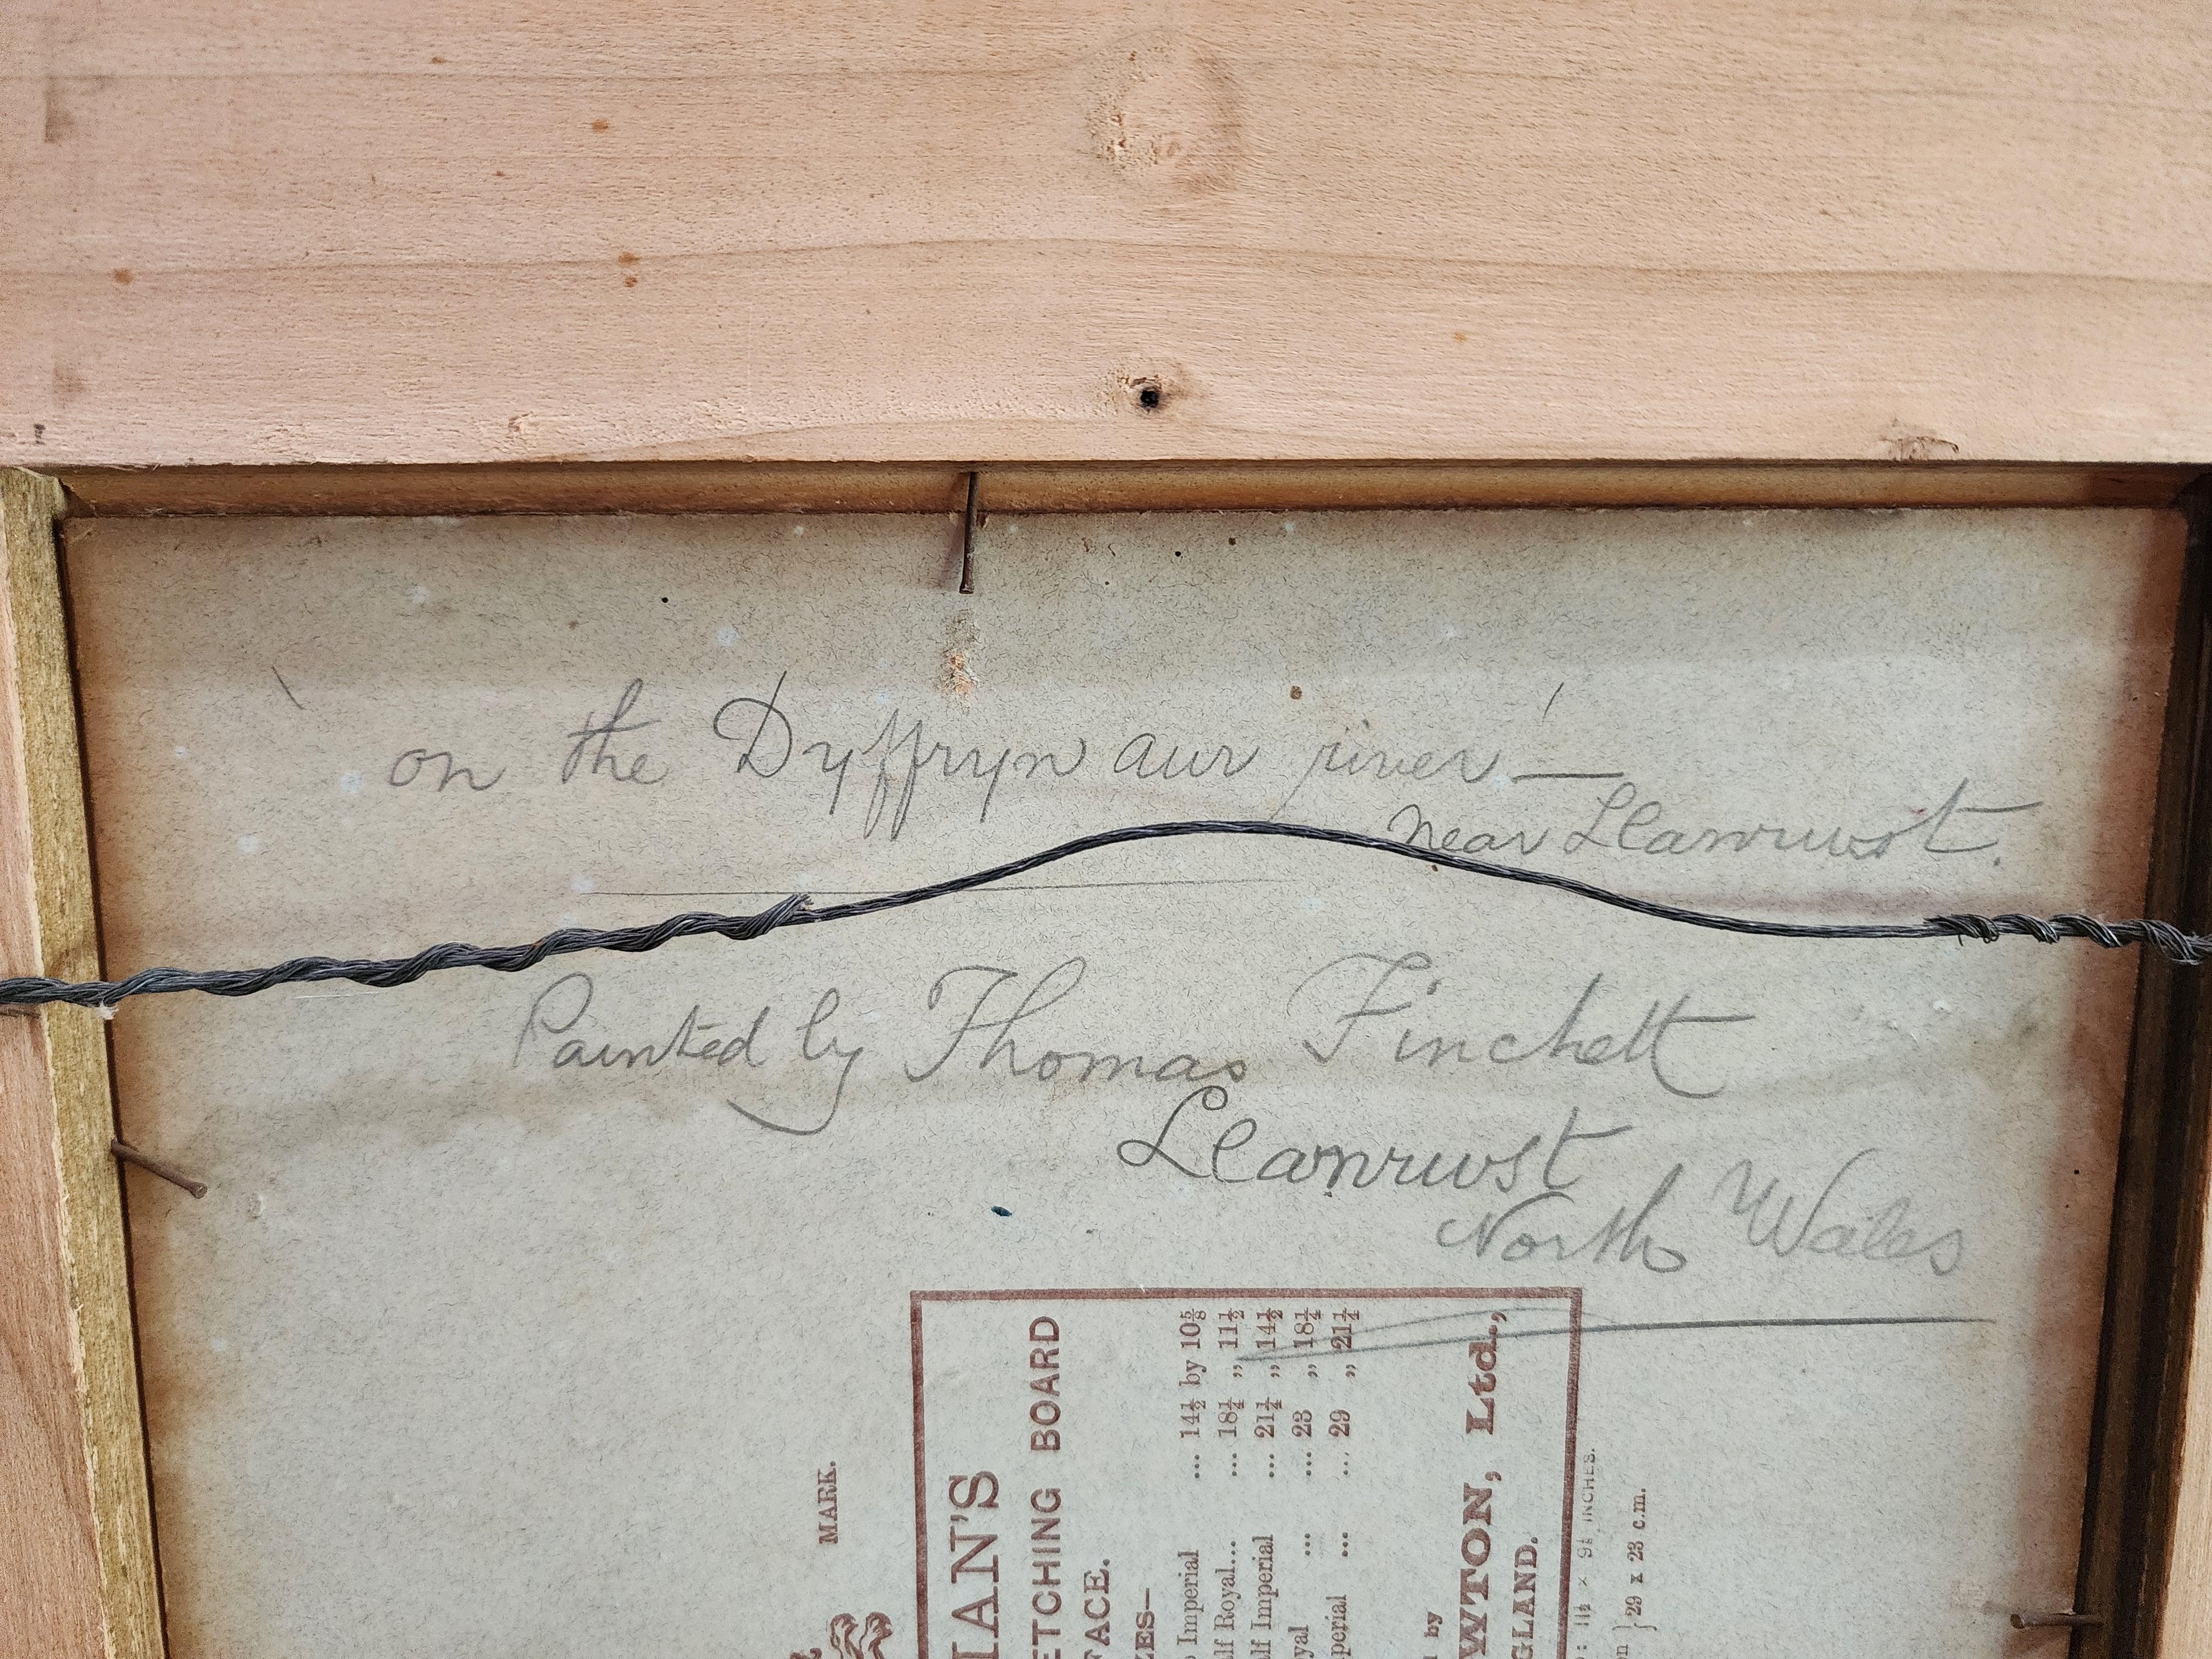 on the Dyffryn aur river —
near Llanrwst.
Painted by Thomas Finchett
Llanrwst
North Wales
MARK.
IAN'S
ETCHING BOARD
FACE.
ZES—
Imperial ... 14½ by 10⅝
lf Royal... ... 18¼ „ 11½
lf Imperial ... 21½ „ 14½
yal ... ... 23 „ 18¼
perial ... ... 29 „ 21¼
by
WTON, Ltd.,
GLAND.
INCHES.
29 x 23 c.m.